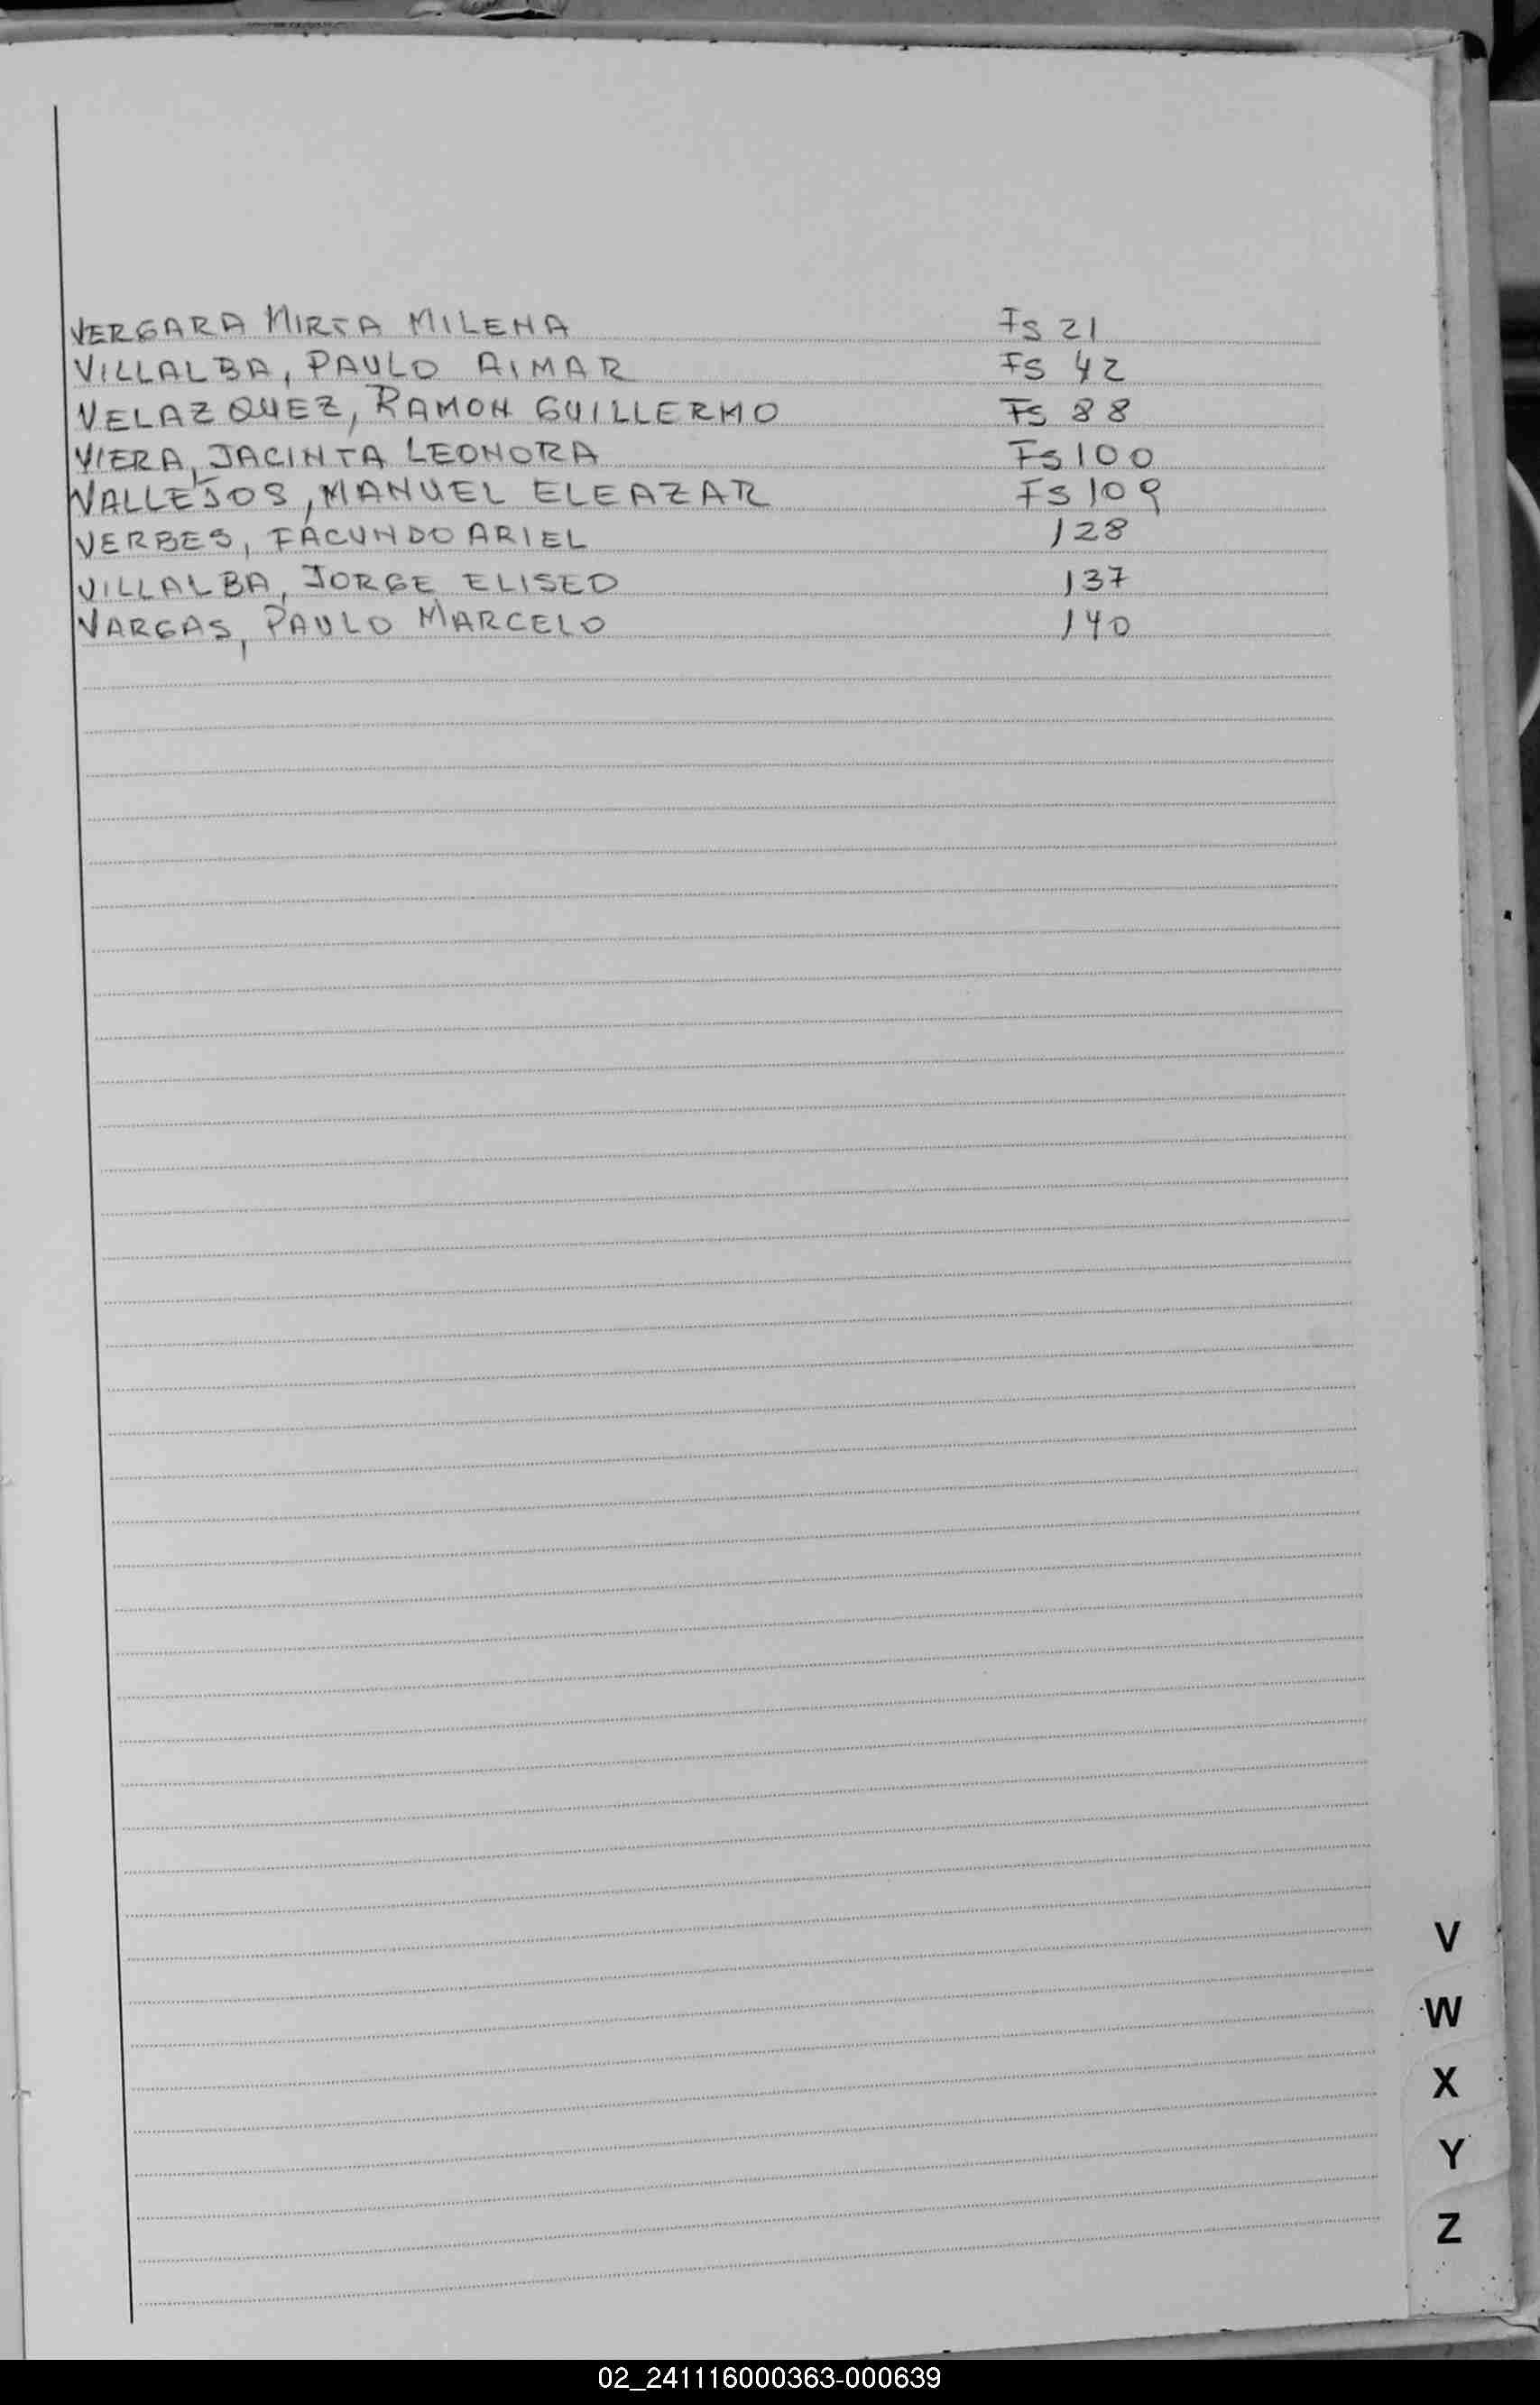 VERGARA MIRTA MILENA Fs 21
VILLALBA, PAULO AIMAR Fs 42
VELAZQUEZ, RAMON GUILLERMO Fs 88
VIERA, JACINTA LEONORA Fs 100
VALLEJOS, MANUEL ELEAZAR Fs 109
VERBES, FACUNDO ARIEL 128
VILLALBA, JORGE ELISEO 137
VARGAS, PAULO MARCELO 140
V
W
X
Y
Z
02_241116000363-000639